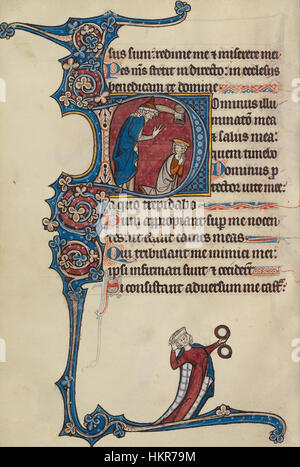 sus sum: redime me & miserere mei
Pes m̄s stetit in directo: in ecclesiis
benedicam te domine
Dominus illu
minatō mea
& salus mea:
quem timebo
Dominus p
tector vite mee:
a quo trepidabo
Dum appropiant sup me nocen
tes: ut edant carnes meas
Qui tribulant me inimici mei:
ipsi infirmati sunt & ceciderūt
Si consistant adversum me cast̄
alamy
HKR79M